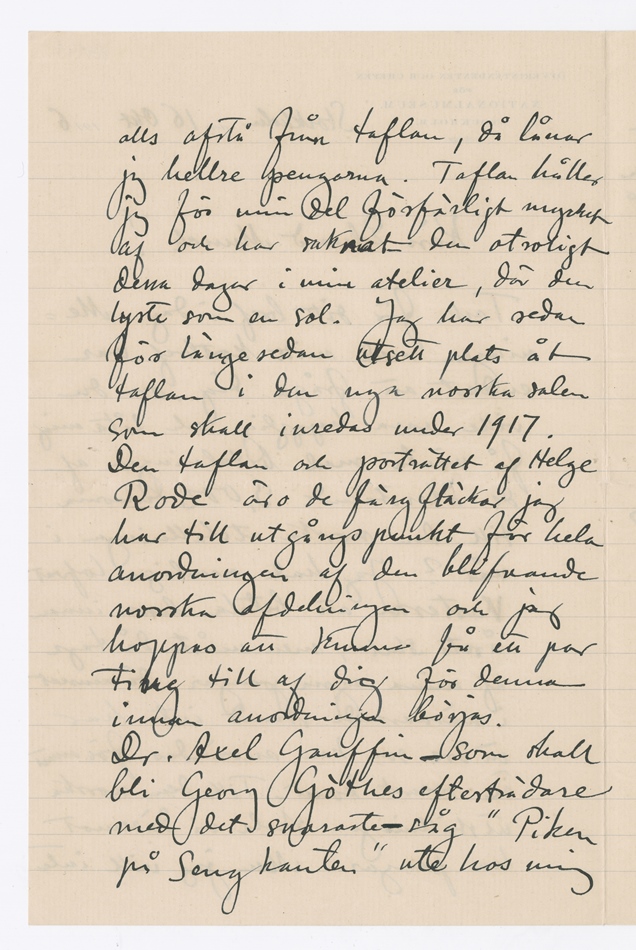 alls afstå från taflan, då lånar
jag hellre pengarna. Taflan håller
jag för min del förfärligt mycket
af och har saknat den otroligt
dessa dagar i min atelier, där den
lyste som en sol. Jag har redan
för länge sedan utsett plats åt
taflan i den nya norska salen
som skall inredas under 1917.
Den taflan och porträttet af Helge
Rode äro de färgfläckar jag
har till utgångspunkt för hela
anordningen af den blifvande
norska afdelningen och jag
hoppas att kunna få ett par
ting till af dig för denna
innan anordningen börjas.
Dr. Axel Gauffin – som skall
bli Georg Göthes efterträdare
med det snaraste – såg "Piken
på Sengkanten" ute hos mig